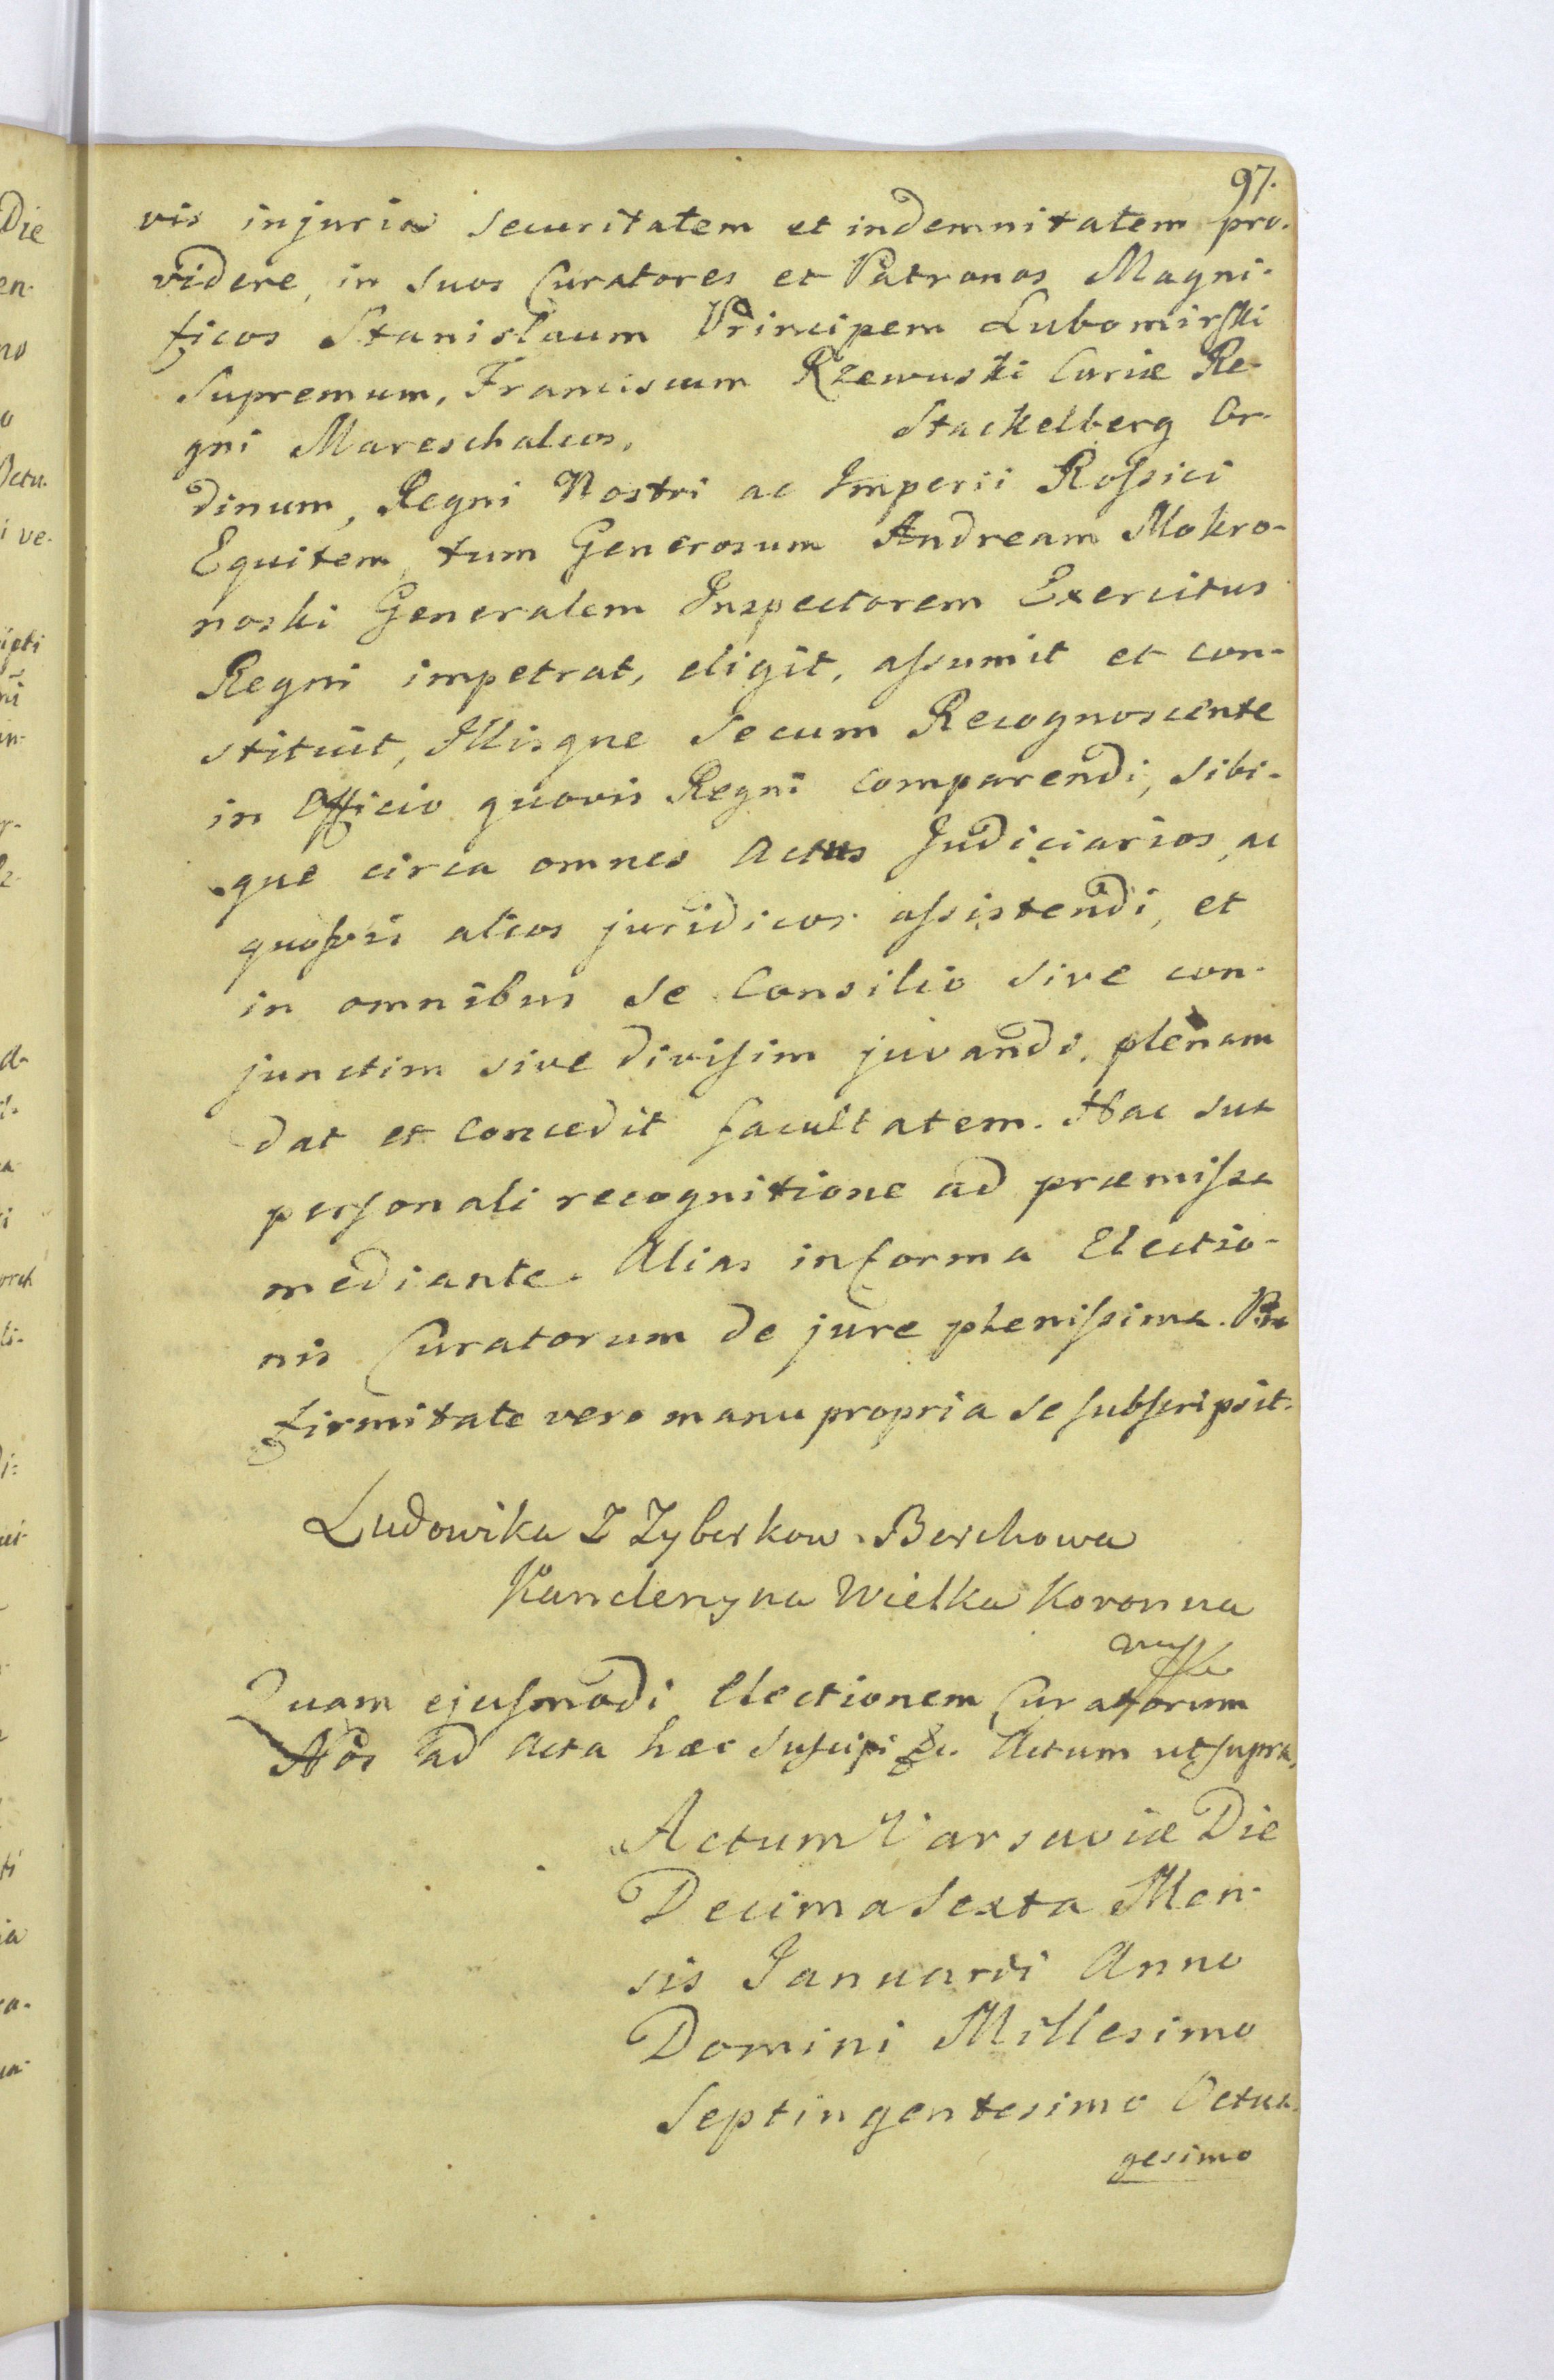 97.
vis injuria securitatem et indemnitatem pro-
videre, in suos Curatores et Patronos Magni-
ficos Stanislaum Principem Lubomirski
Supremum, Franciscum Rzewuski Curiæ Re-
gni Mareschalcos, Stackelberg Or-
dinum, Regni Nostri ac Imperii Rossici
Equitem, tum Generosum Andream Mokro-
noski Generalem Inspectorem Exercitus
Regni impetrat, eligit, assumit et con-
stituit, Illisque secum Recognoscente
in Officio quovis Regni comparendi, sibi-
que circa omnes Actus Judiciarios, ac
quosvis alios juridicos assistendi, et
in omnibus se Consilio sive con-
junctim sive divisim juvandi, plenam
dat et concedit facultatem. Hac sua
personali recognitione ad præmissa
mediante. Alias in forma Electio-
nis Curatorum de jure plenissima. Pro
firmitate vero manu propria se subscripsit.
Ludowika Z Zyberkow Borchowa
Kanclerzyna Wielka Koronna
Quam ejusmodi Electionem Curatorum
Nos ad Acta hæc suscipi &c. Actum ut supra,
Actum Varsaviæ Die
Decima Sexta Men-
sis Januarii Anno
Domini Millesimo
Septingentesimo Octua-
gesimo
Die
en-
no
o
Actu-
i ve-
ipti
in-
orch
li-
ti
ia